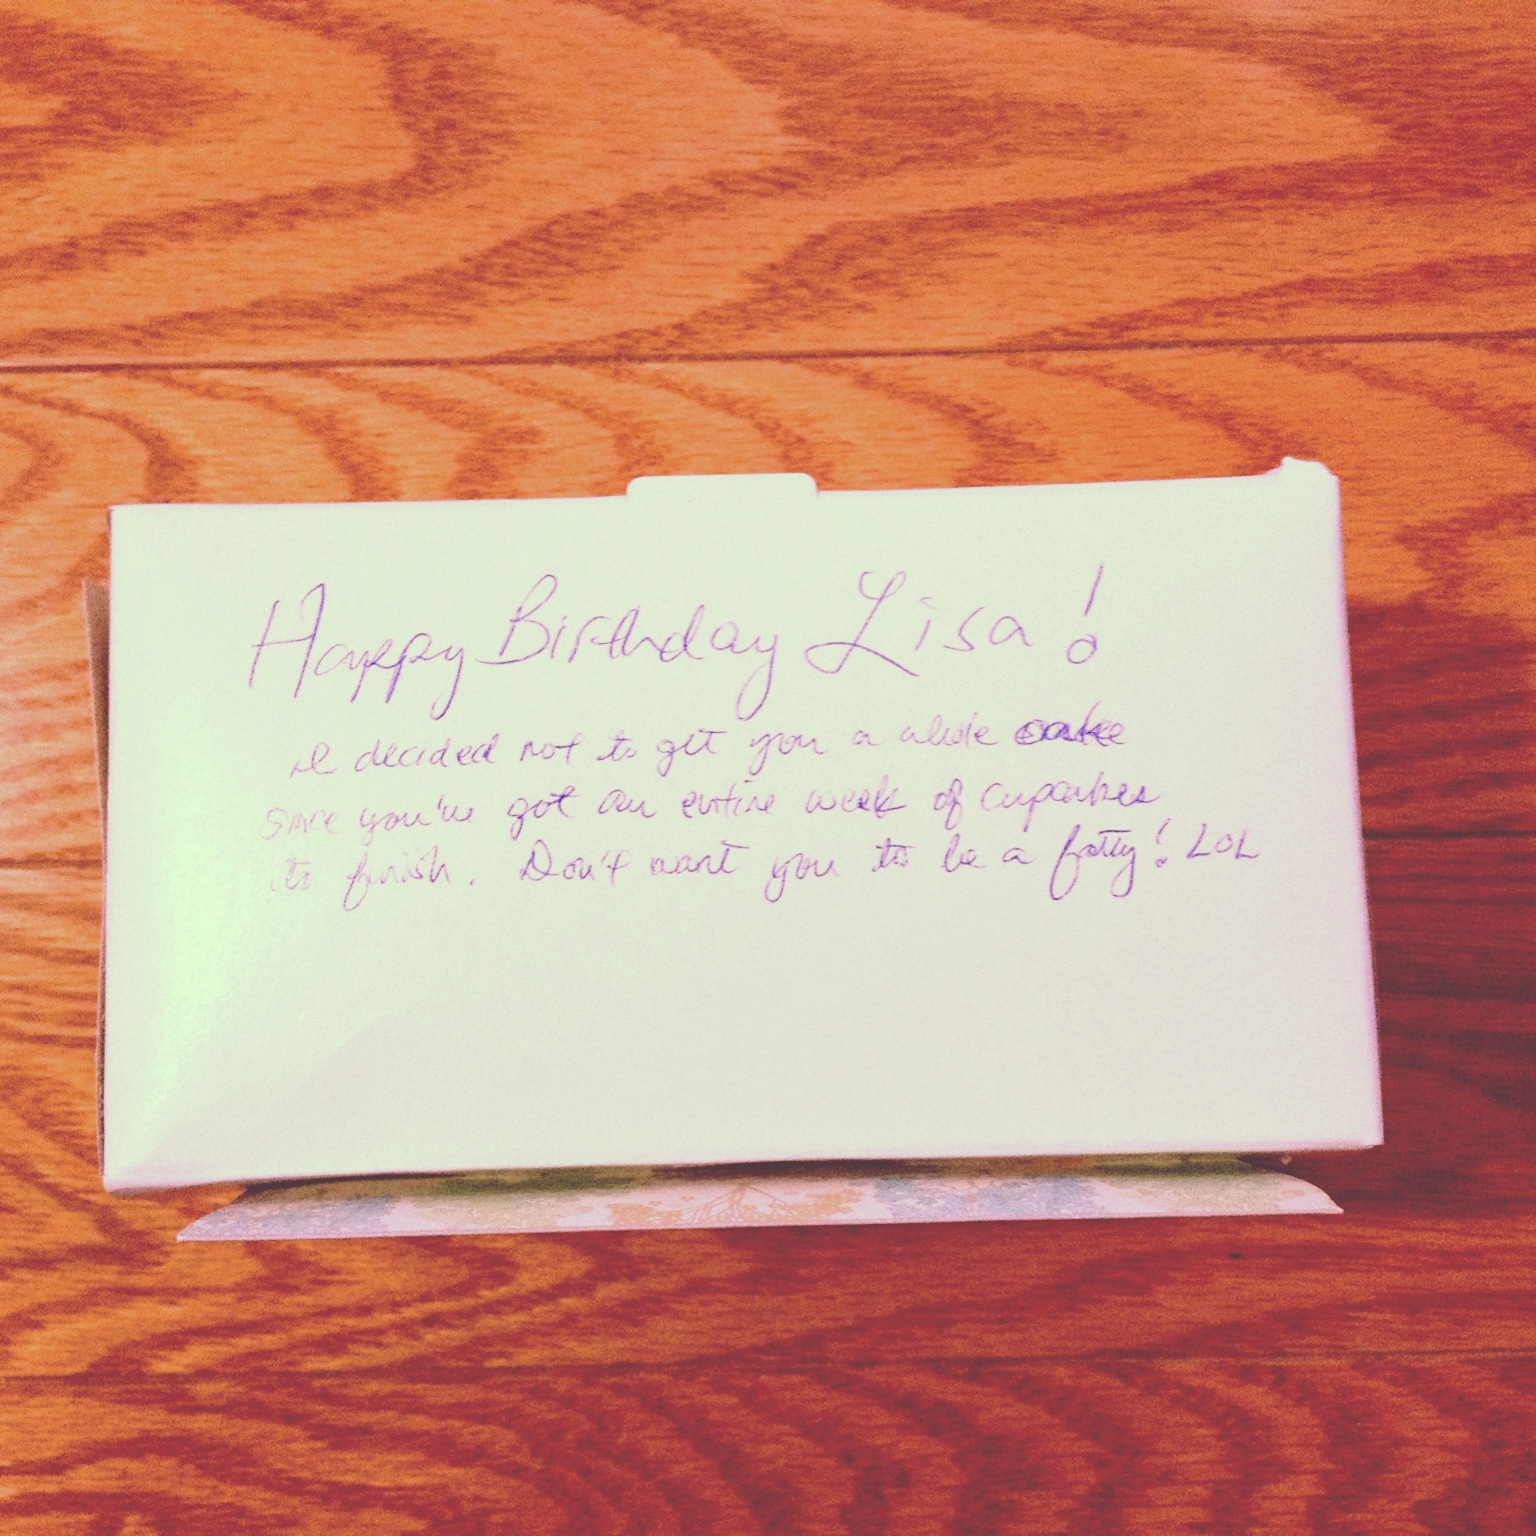 Happy Birthday Lisa!
I decided not to get you a whole cake
since you've got an entire week of cupcakes
to finish. Don't want you to be a fatty! LOL